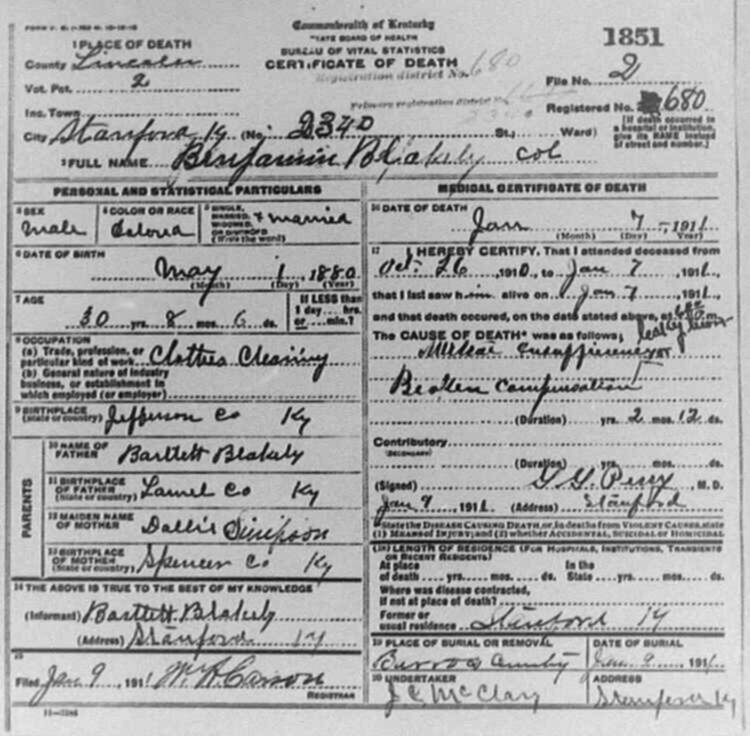 Commonwealth of Kentucky
STATE BOARD OF HEALTH
BUREAU OF VITAL STATISTICS
CERTIFICATE OF DEATH
1851
1 PLACE OF DEATH
County Lincoln
Registration district No. 680
File No. 2
Vot. Pct. 2
Primary registration district No.
2340
Registered No. 680
Inc. Town
City Stanford Ky (No. 2340 St.; Ward)
[If death occurred in a hospital or institution, give its NAME instead of street and number.]
2 FULL NAME Benjamin Blakely col
PERSONAL AND STATISTICAL PARTICULARS
3 SEX
male
4 COLOR OR RACE
Colored
5 SINGLE, MARRIED, WIDOWED, OR DIVORCED (Write the word)
married
6 DATE OF BIRTH
May 1 1880
(Month) (Day) (Year)
7 AGE
30 yrs. 8 mos. 6 ds.
If LESS than 1 day.... hrs. or.... min.?
8 OCCUPATION
(a) Trade, profession, or particular kind of work Clothes Cleaning
(b) General nature of industry business, or establishment in which employed (or employer)
9 BIRTHPLACE
(State or country) Jefferson Co Ky
PARENTS
10 NAME OF FATHER Bartlett Blakely
11 BIRTHPLACE OF FATHER (State or country) Laurel Co Ky
12 MAIDEN NAME OF MOTHER Simpson
13 BIRTHPLACE OF MOTHER (State or country) Spencer Co Ky
14 THE ABOVE IS TRUE TO THE BEST OF MY KNOWLEDGE
(Informant) Bartlett Blakely
(Address) Stanford Ky
15
Filed Jan 9, 1911 Carson
REGISTRAR
11-3286
MEDICAL CERTIFICATE OF DEATH
16 DATE OF DEATH
Jan 7 1911
(Month) (Day) (Year)
17 I HEREBY CERTIFY, That I attended deceased from
Oct. 26, 1910, to Jan 7 1911,
that I last saw him alive on Jan 7 1911,
and that death occured, on the date stated above, at m.
The CAUSE OF DEATH* was as follows;
Mitral Insufficiency
Broken Compensation
(Duration) yrs. 2 mos. 12 ds.
Contributory
(SECONDARY)
(Duration) yrs. mos. ds.
(Signed) M.D.
Jan 9 1911 (Address) Stanford
*State the DISEASE CAUSING DEATH, or, in deaths from VIOLENT CAUSES, state
(1) MEANS OF INJURY; and (2) whether ACCIDENTAL, SUICIDAL or HOMICIDAL
(18) LENGTH OF RESIDENCE (FOR HOSPITALS, INSTITUTIONS, TRANSIENTS
OR RECENT RESIDENTS)
At place of death .... yrs. .... mos. .... ds. In the State .... yrs. .... mos. .... ds.
Where was disease contracted,
if not at place of death?
Former or usual residence Stanford Ky
19 PLACE OF BURIAL OR REMOVAL
DATE OF BURIAL
Jan 9 1911
20 UNDERTAKER
J C McClary
ADDRESS
Stanford Ky